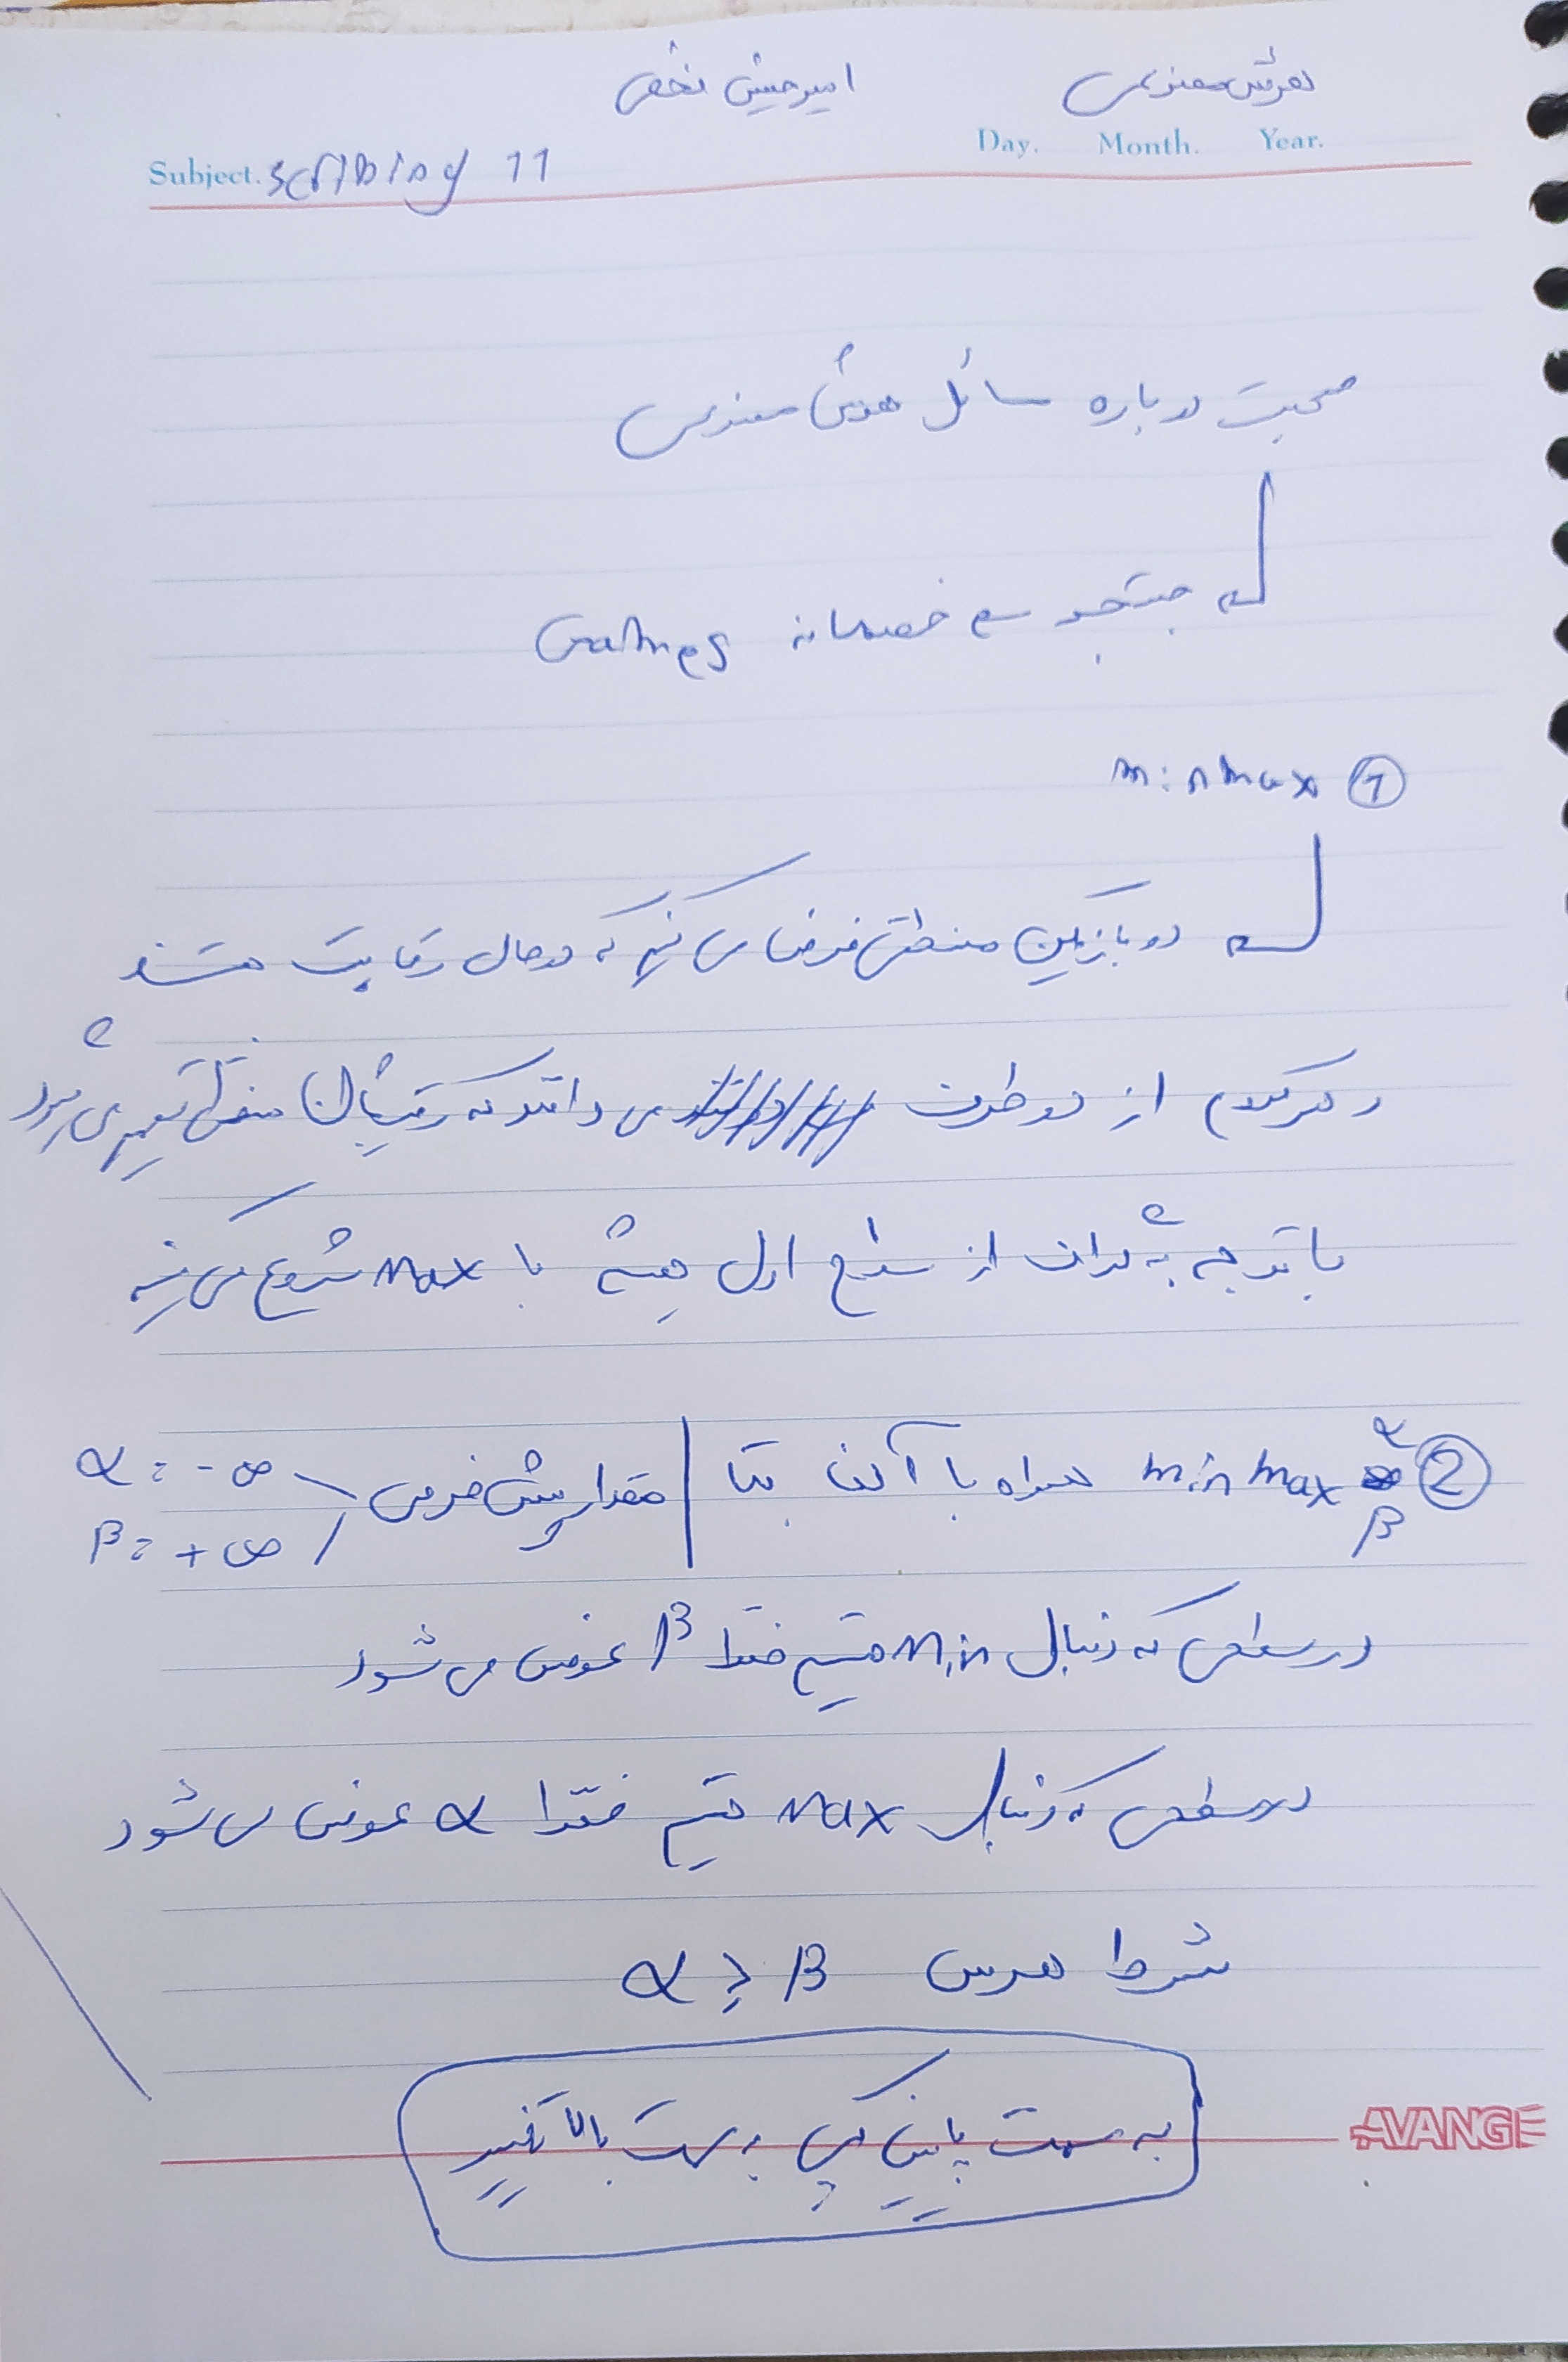 هوش مصنوعی امیرحسین نخعی
Day. Month. Year.
Subject. scribing 11
صحبت درباره مسائل هوش مصنوعی
جستجوی خصمانه Games
① minmax
دو بازیکن منطقی فرض می کنیم که در حال رقابت هستند
و هرکدام از دو طرف می دانند که رقیبشان منطقی تصمیم می گیرد
با توجه به عمق از سطح اول همیشه با Max شروع می کنیم
② minmax α β همراه با آلفا بتا | مقدار پیش فرض α = -∞
β = +∞
در سطحی که دنبال Min هستیم فقط β عوض می شود
در سطحی که دنبال Max هستیم فقط α عوض می شود
شرط هرس α ≥ β
به سمت پایین کپی به سمت بالا تغییر
AVANGE